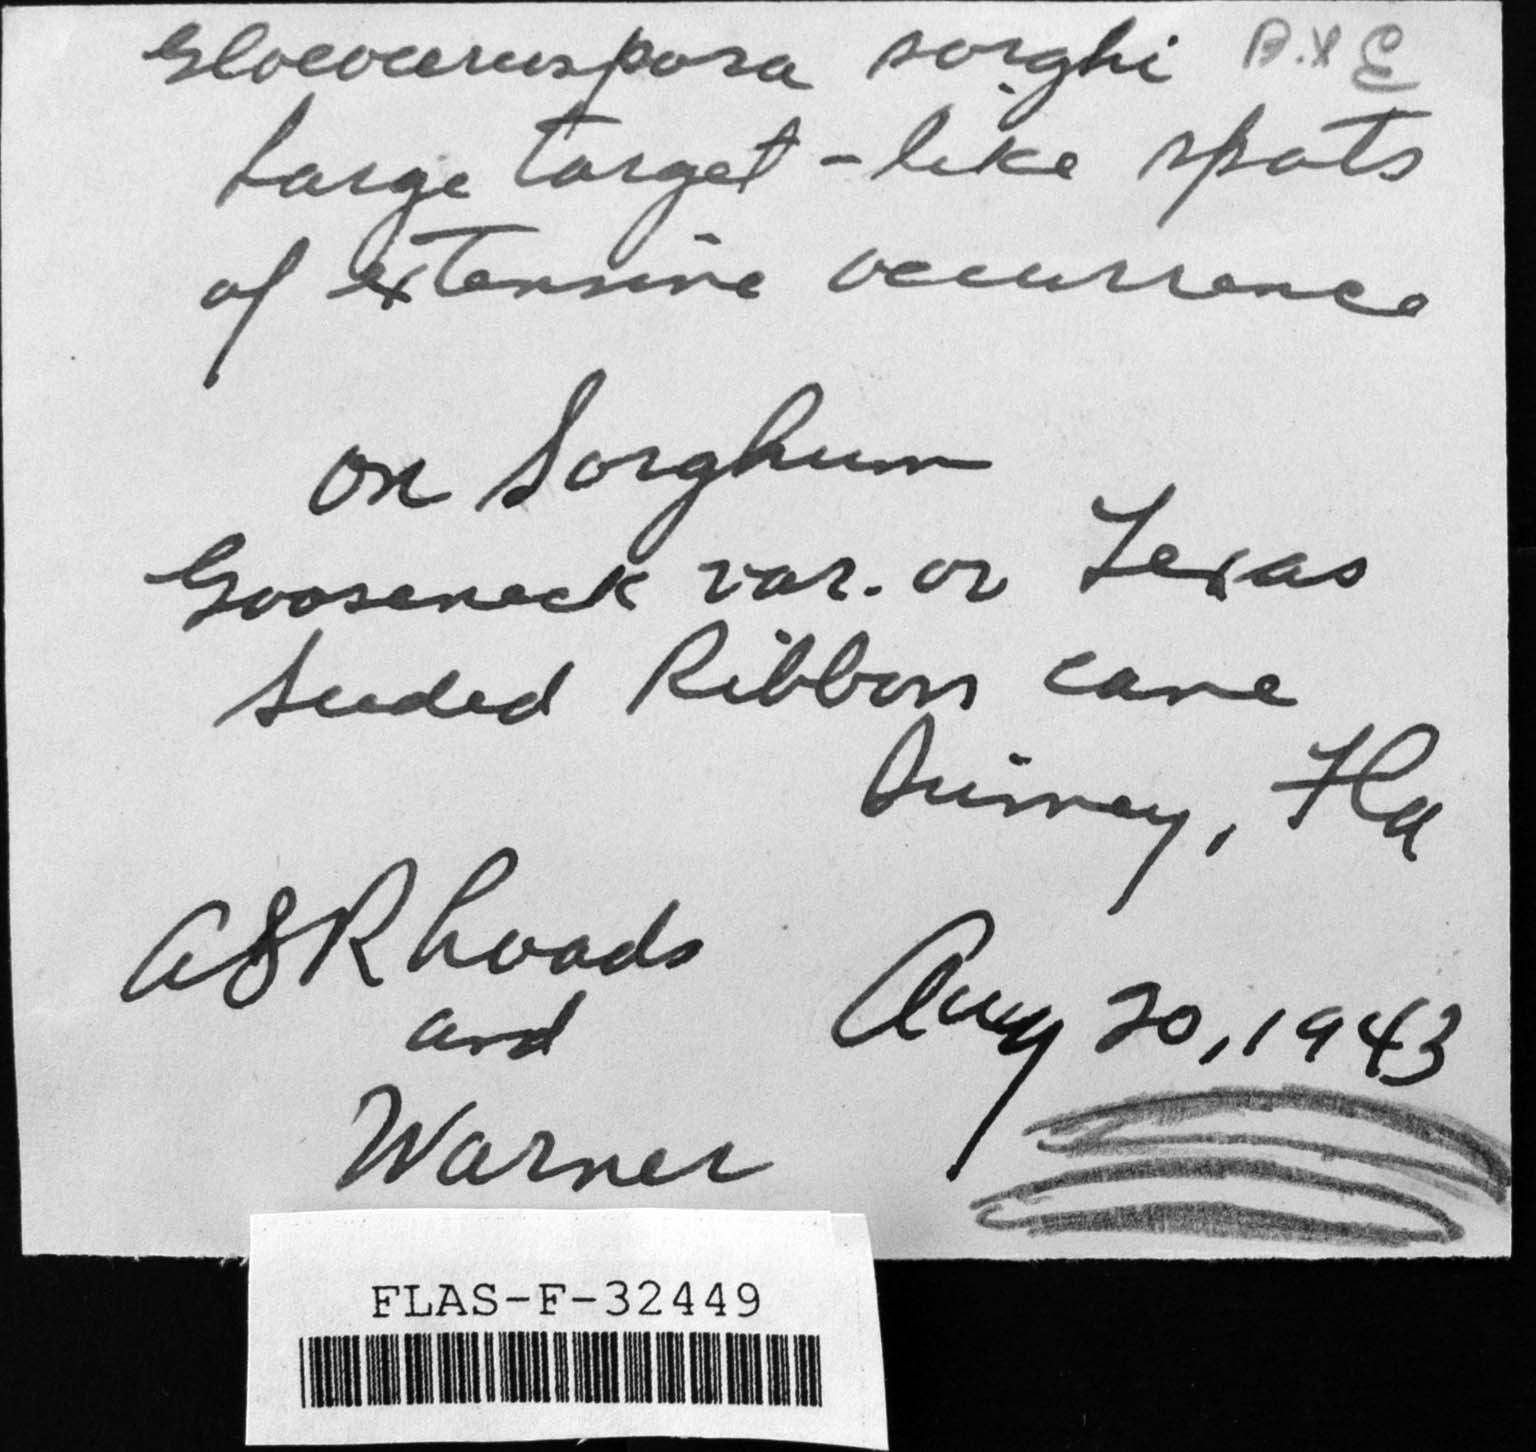 Gloeocercospora sorghi B. & E
Large target-like spots
of extensive occurrence
on Sorghum
Gooseneck var. or Texas
Seeded Ribbon cane
Quincy, Fla
A S Rhoads
and
Warner
Aug 20, 1943
FLAS-F-32449